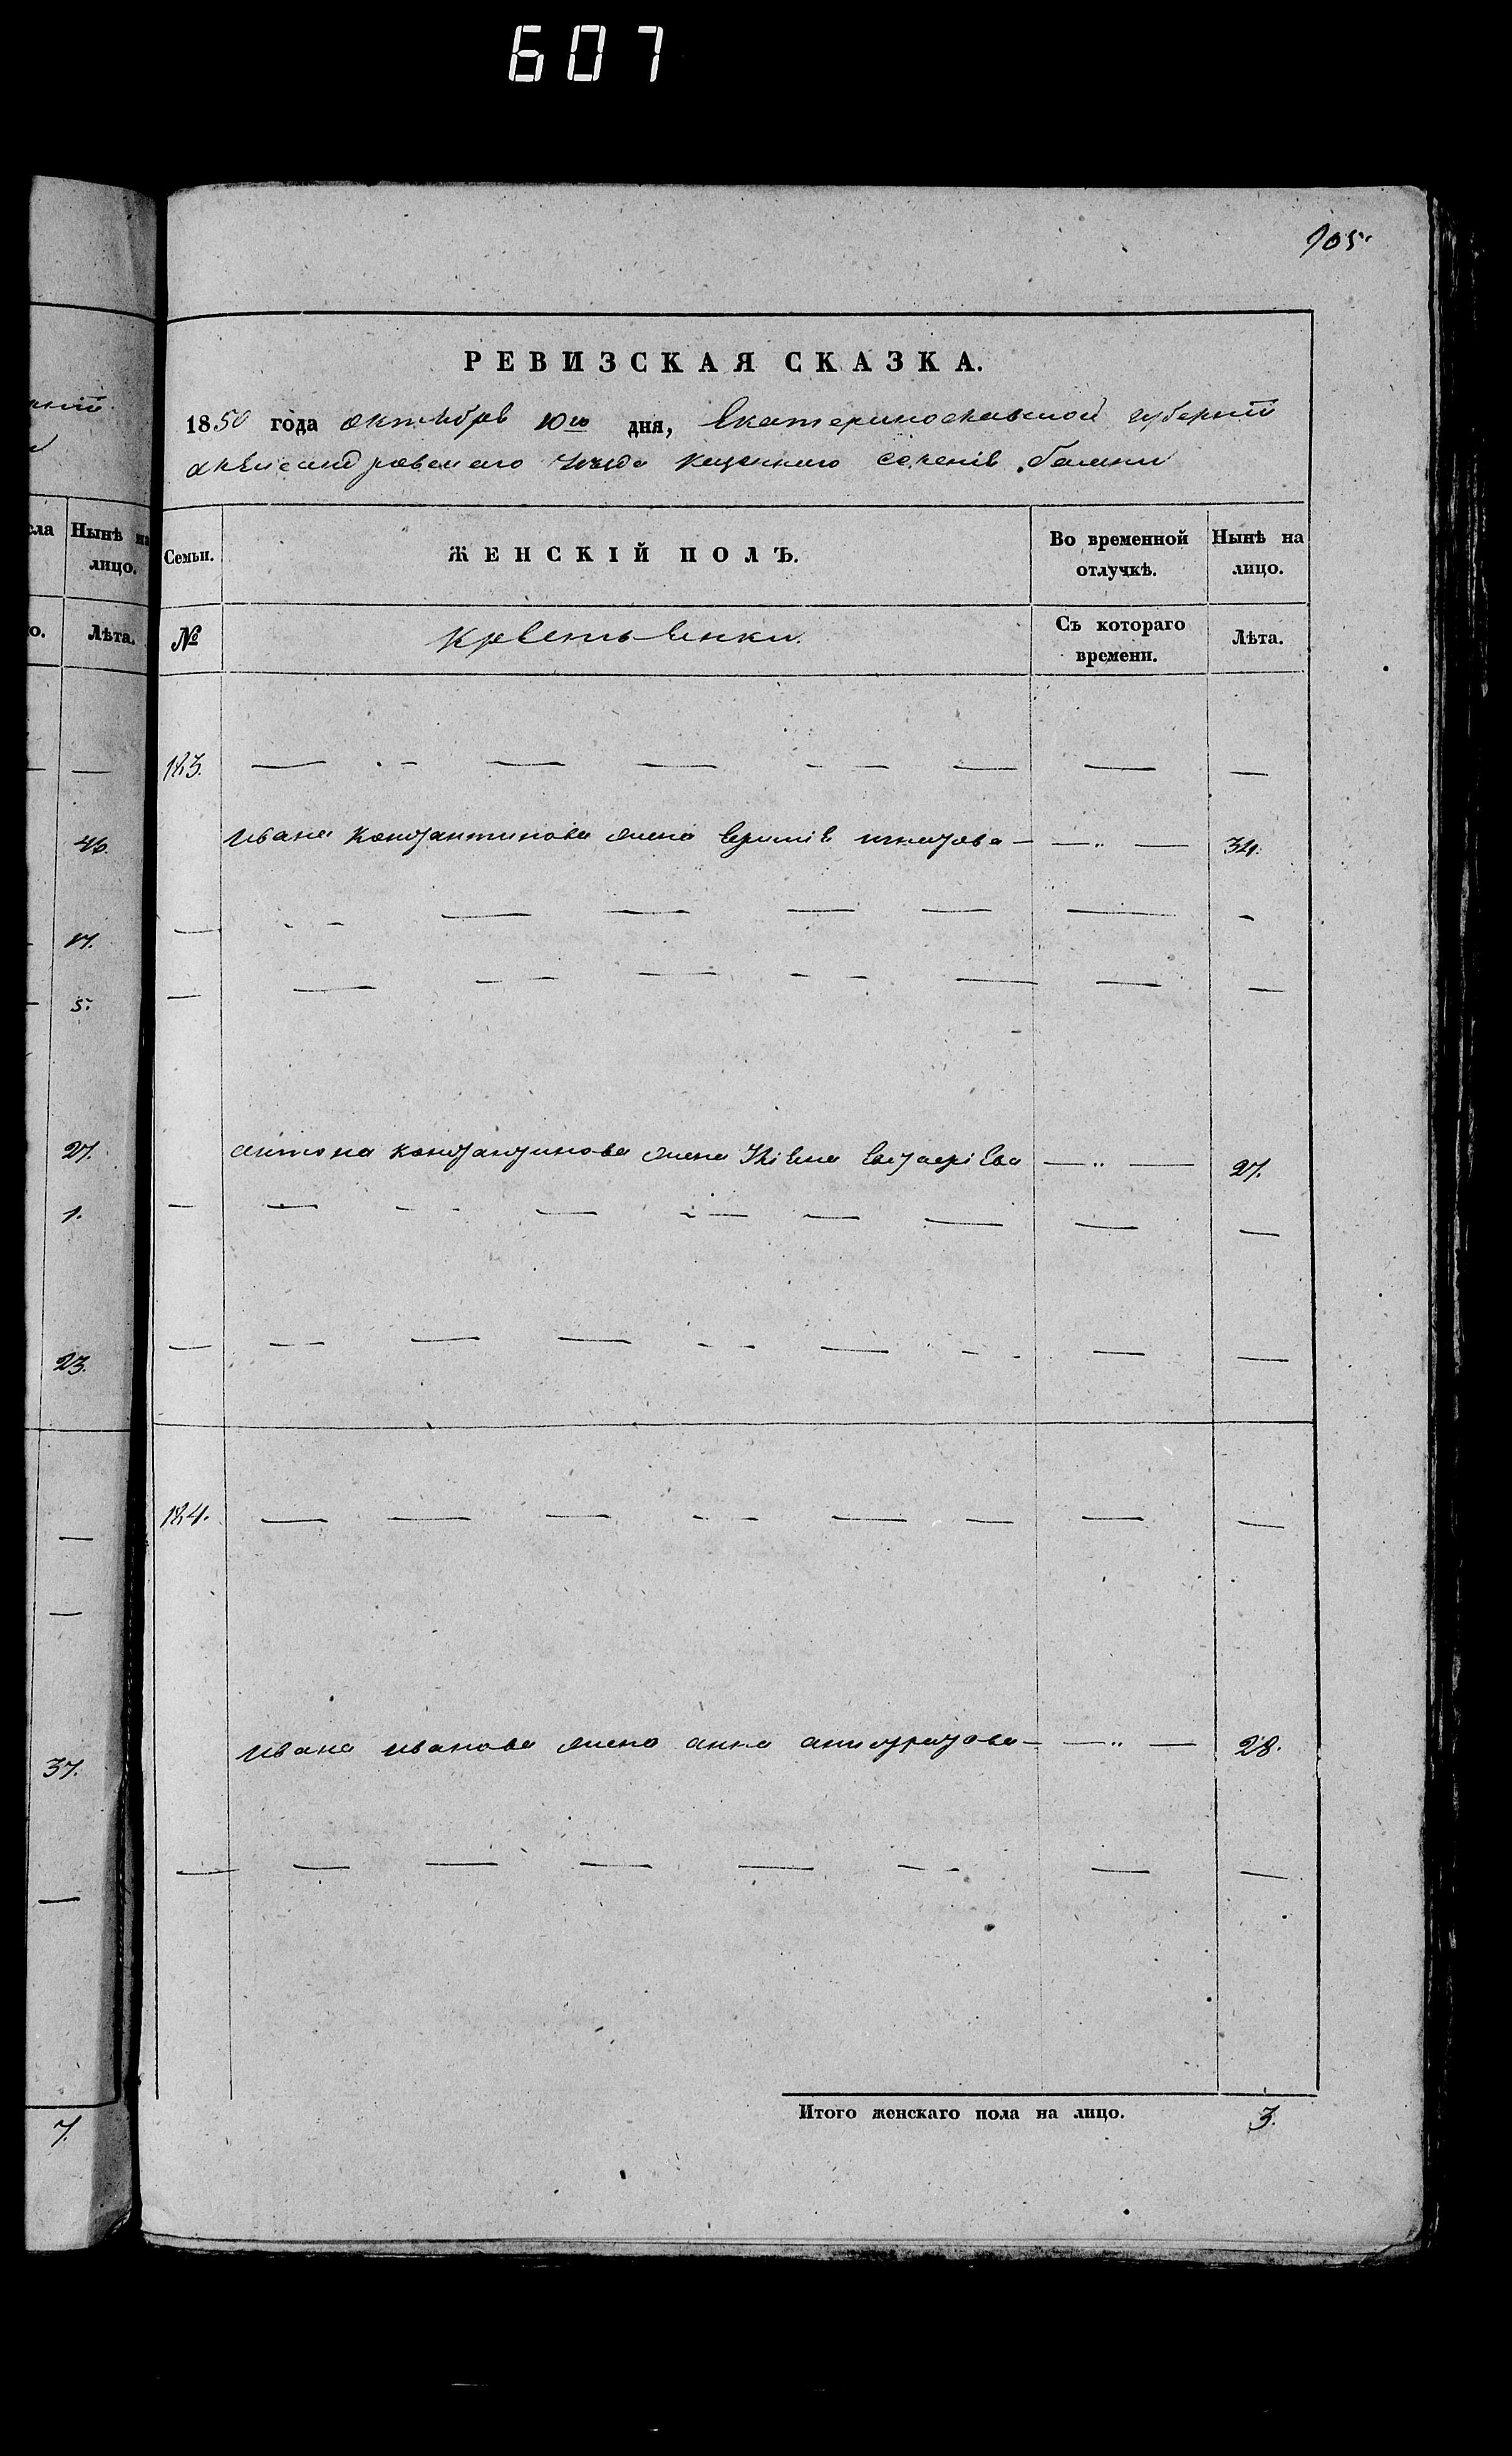 607
905.
РЕВИЗСКАЯ СКАЗКА.
1850 года октября 10го дня, Екатеринославской губернии
александровскаго уезда казеннаго селения Балки
сла Нынѣ на лицо.
Семьи. ЖЕНСКІЙ ПОЛЪ. Во временной отлучкѣ. Нынѣ на лицо.
о. Лѣта.
№ крестьянки. Съ котораго времени. Лѣта.
183. — — — — — — — —
46.
Ивана Константинова жена игнатова — — „ — 34.
17.
5.
27.
антона константинова жена евстафіева — „ — 27.
1.
23.
184. — — — — — — — —
37.
Ивана иванова жена анна — — „ — 28.
7.
Итого женскаго пола на лицо. 3.